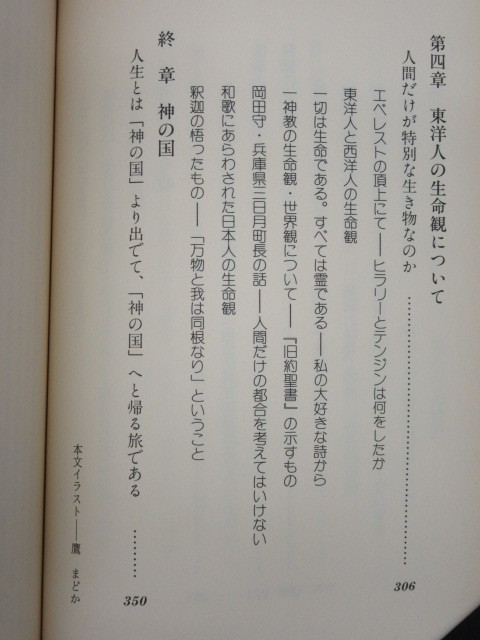 第四章　東洋人の生命観について
人間だけが特別な生き物なのか……………………………306
エベレストの頂上にて——ヒラリーとテンジンは何をしたか
東洋人と西洋人の生命観
一切は生命である。すべては霊である——私の大好きな詩から
一神教の生命観・世界観について——『旧約聖書』の示すもの
岡田守・兵庫県三日月町長の話——人間だけの都合を考えてはいけない
和歌にあらわされた日本人の生命観
釈迦の悟ったもの——「万物と我は同根なり」ということ
終　章　神の国
人生とは「神の国」より出でて、「神の国」へと帰る旅である…………350
本文イラスト——鷹　まどか